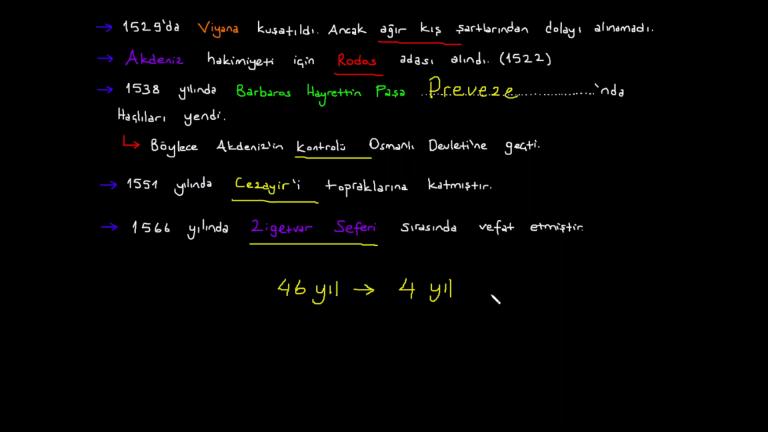 → 1529'da Viyana kuşatıldı. Ancak ağır kış şartlarından dolayı alınamadı.
→ Akdeniz hakimiyeti için Rodos adası alındı. (1522)
→ 1538 yılında Barbaros Hayrettin Paşa Preveze'nda
Haçlıları yendi.
↳ Böylece Akdeniz'in kontrolü Osmanlı Devleti'ne geçti.
→ 1551 yılında Cezayir'i topraklarına katmıştır.
→ 1566 yılında Zigetvar Seferi sırasında vefat etmiştir.
46 yıl → 4 yıl